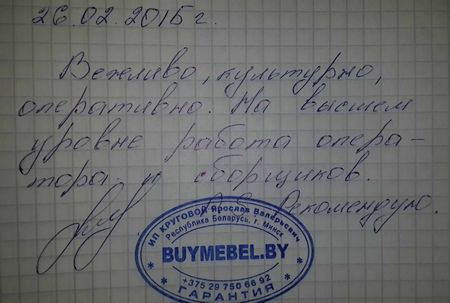 26.02.2015 г.
Вежливо, культурно,
оперативно. На высшем
уровне работа опера-
тора и сборщиков.
Рекомендую.
ИП КРУГОВОЙ Ярослав Валерьевич
Республика Беларусь, г. Минск
BUYMEBEL.BY
+375 29 750 66 92
ГАРАНТИЯ